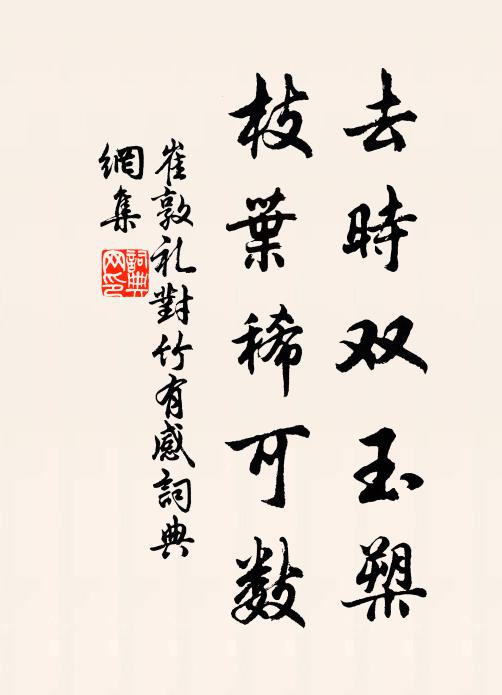 去時双玉槊
枝葉稀可数
崔敦礼對竹有感詞典
網集
詞典網印